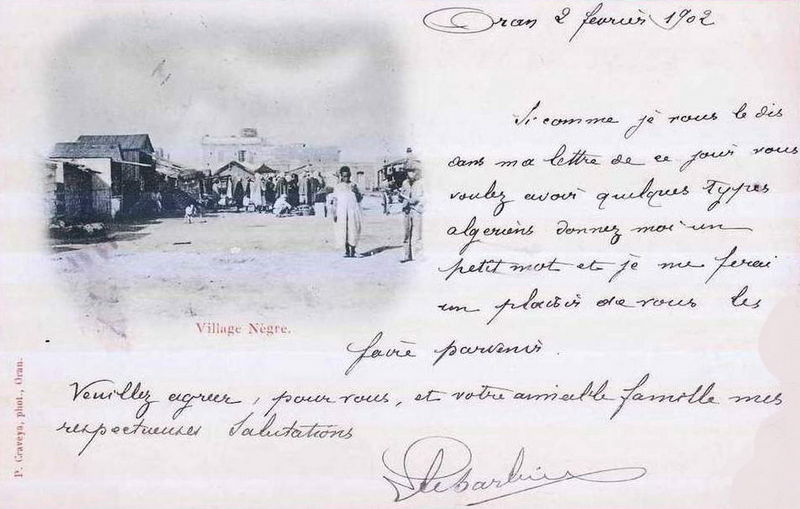 Oran 2 fevrier 1902
Si comme je vous le dis
dans ma lettre de ce jour vous
voulez avoir quelques types
algeriens donnez moi un
petit mot et je me ferai
un plaisir de vous les
faire parvenir.
Village Nègre.
Veuillez agreer, pour vous, et votre aimable famille mes
respectueuses Salutations
P. Craveya, phot., Oran.